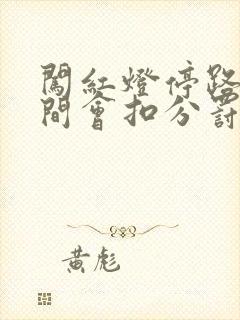 闖紅燈停路
間會扣分罰
黃彪